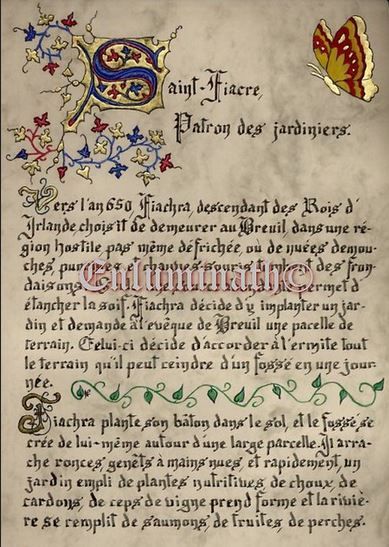 Saint-Fiacre,
Patron des jardiniers.
Vers l'an 650, Fiachra, descendant des Rois d'
Irlande choisit de demeurer au Breuil, dans une ré-
gion hostile pas même défrichée, où de nuées de mou-
ches, punaises et chauves-souris tombent des fron-
daisons permet d'
Enluminath©
étancher la soif. Fiachra décide d'y implanter un jar-
din et demande à l'evêque de Breuil une pacelle de
terrain. Celui-ci décide d'accorder à l'ermite tout
le terrain qu'il peut ceindre d'un fossé en une jour-
née.
Fiachra plante son bâton dans le sol, et le fossé se
crée de lui-même autour d'une large parcelle. Il arra-
che ronces, genêts à mains nues, et rapidement, un
jardin empli de plantes nutritives, de choux, de
cardons, de ceps de vigne prend forme et la riviè-
re se remplit de saumons, de truites, de perches.